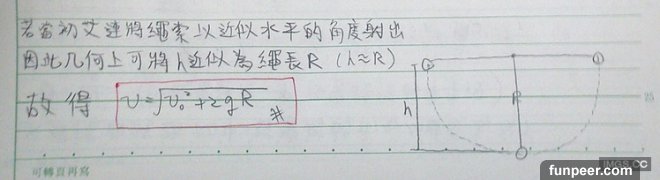 若當初艾連將繩索以近似水平的角度射出
因此几何上可將h近似為繩長R (h≈R)
故得 v=√v₀²+2gR #
h
R
25
可轉頁再寫
IMGS.CC
funpeer.com